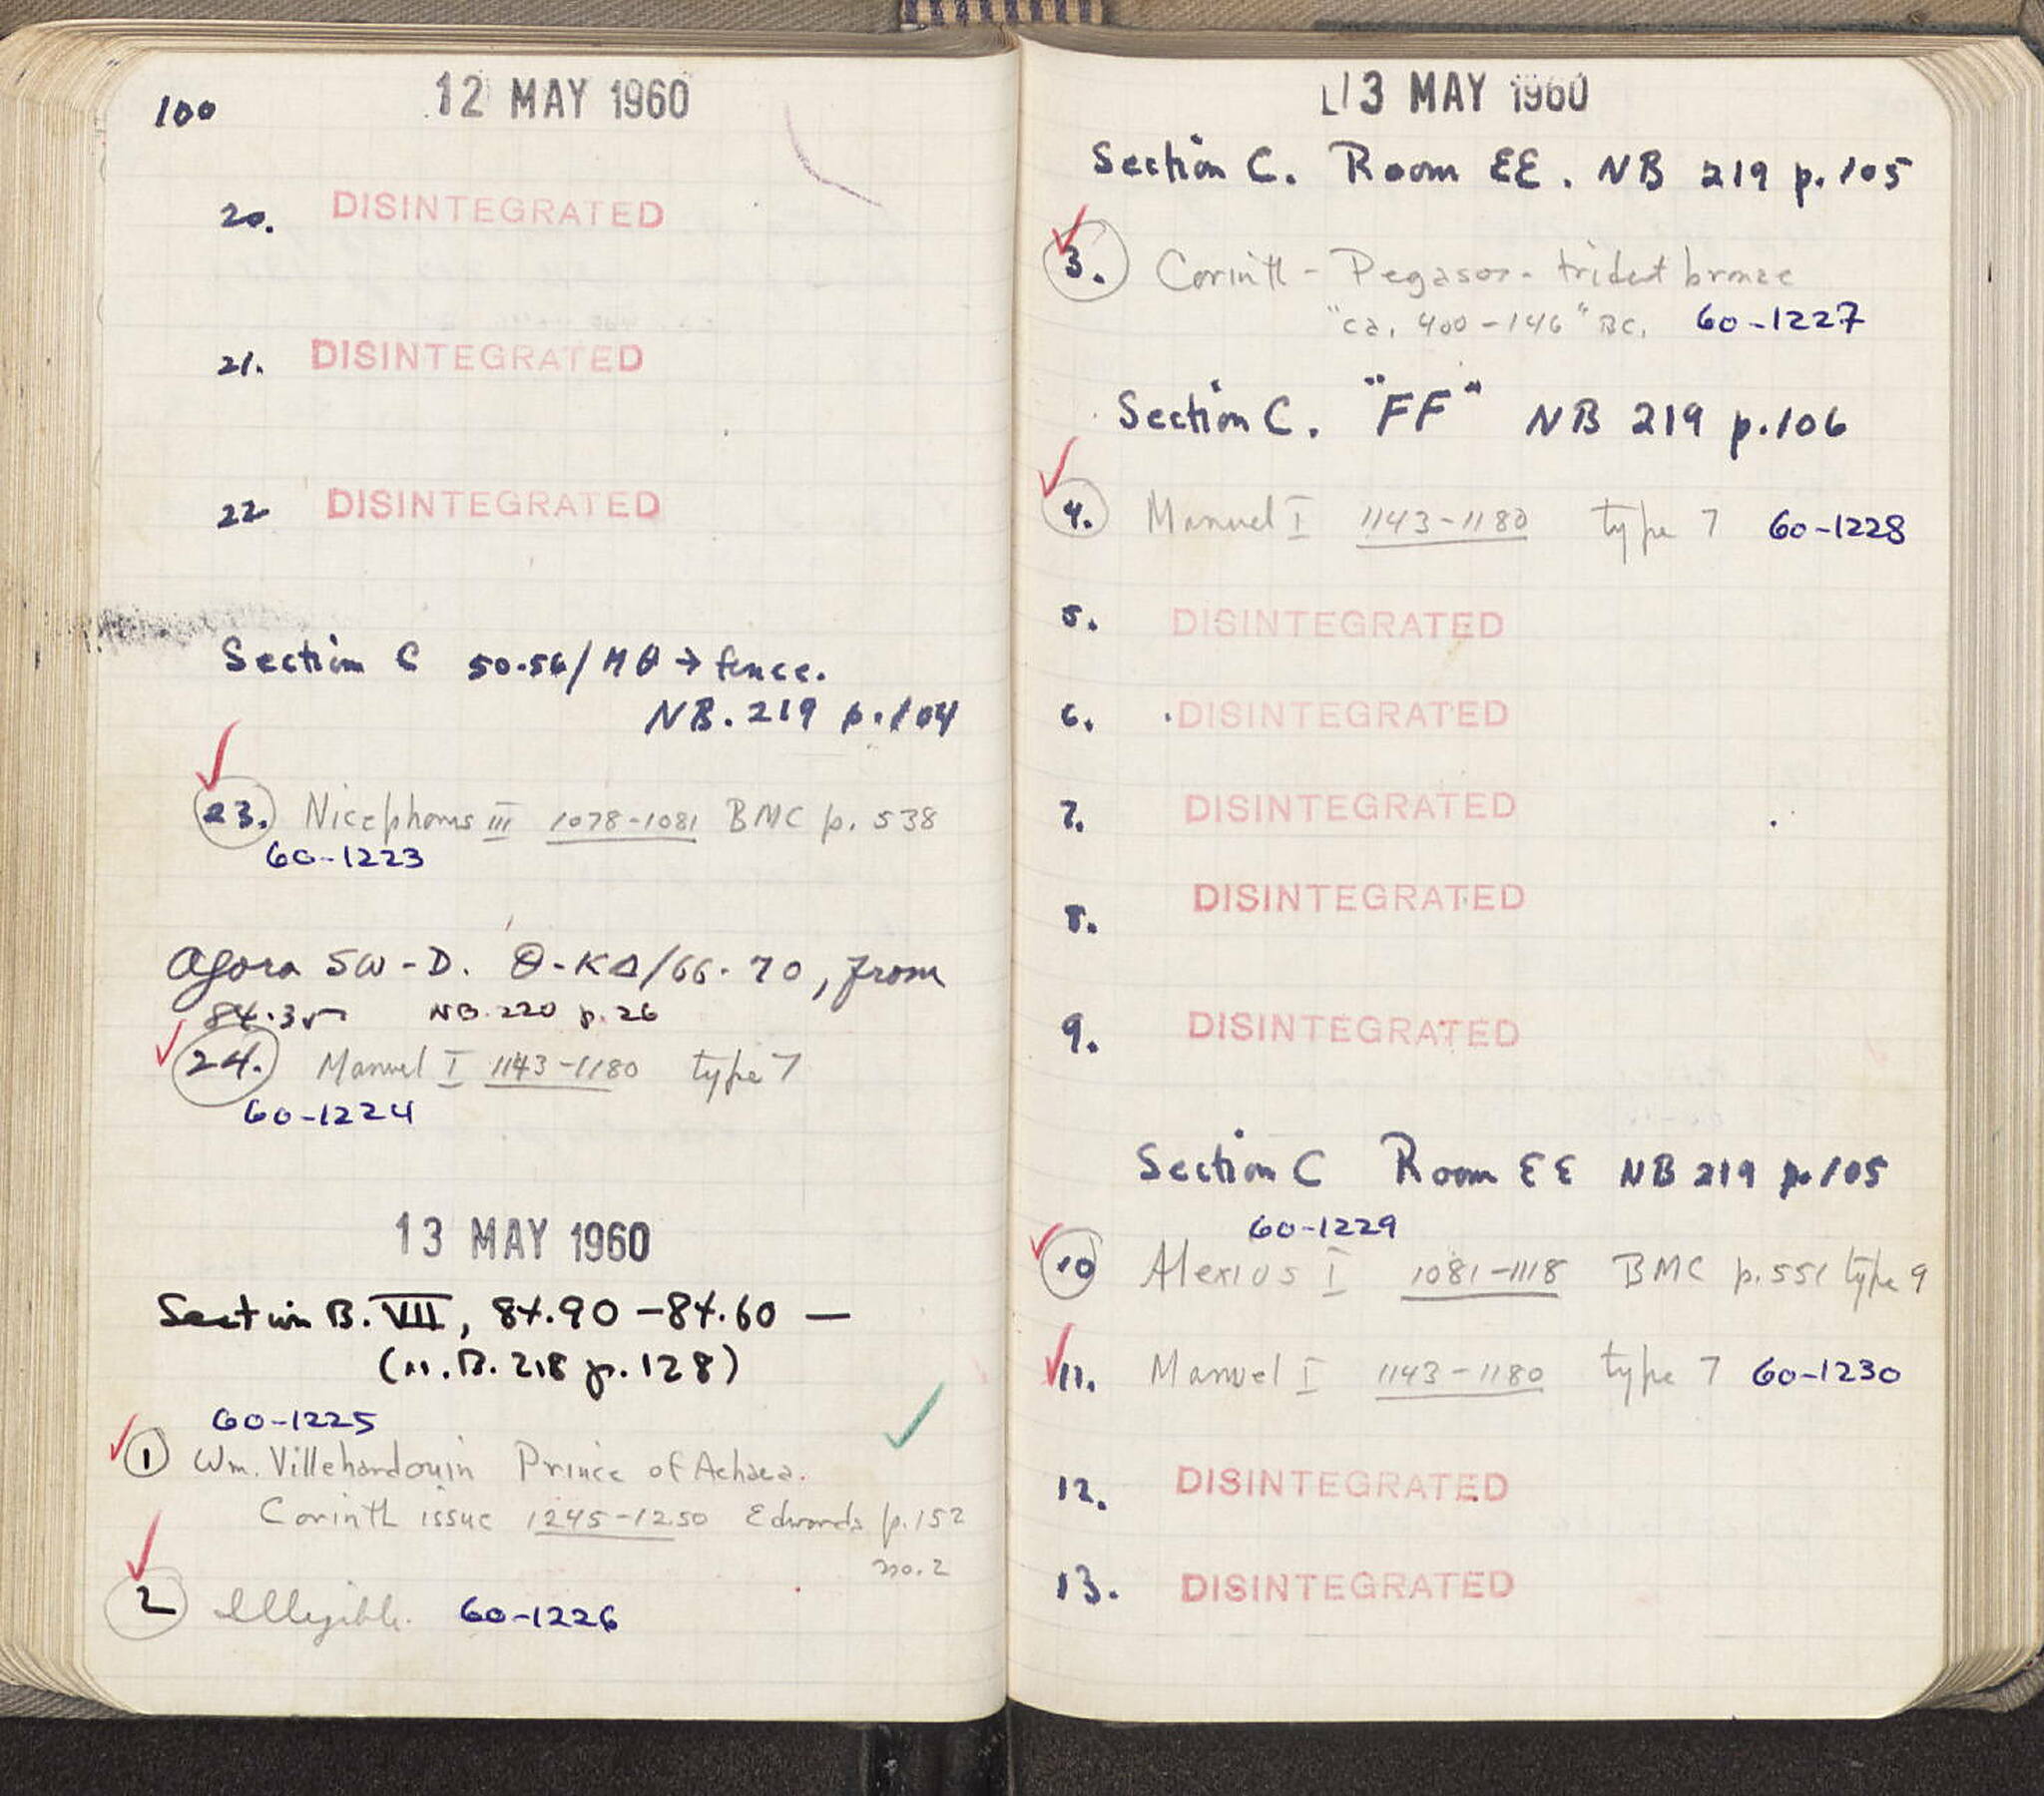 100
12 MAY 1960
20. DISINTEGRATED
21. DISINTEGRATED
22 DISINTEGRATED
Section C 50-56/ΜΘ → fence.
NB. 219 p. 104
23. Nicephorus III 1078-1081 BMC p. 538
60-1223
Agora SW-D. Θ-ΚΔ/66-70, from
NB. 220 p. 26
24. Manuel I 1143-1180 type 7
60-1224
13 MAY 1960
Section B. VII, 84.90 - 84.60 —
(N.B. 218 p. 128)
60-1225
1 Wm. Villehardouin Prince of Achaea.
Corinth issue 1245-1250 Edwards p. 152
no. 2
2 Illegible. 60-1226
13 MAY 1960
Section C. Room EE. NB 219 p. 105
3. Corinth - Pegasos - trident bronze
"ca. 400-146" BC. 60-1227
Section C. "FF" NB 219 p. 106
4. Manuel I 1143-1180 type 7 60-1228
5. DISINTEGRATED
6. DISINTEGRATED
7. DISINTEGRATED
8. DISINTEGRATED
9. DISINTEGRATED
Section C Room EE NB 219 p. 105
60-1229
10 Alexius I 1081-1118 BMC p. 551 type 9
11. Manuel I 1143-1180 type 7 60-1230
12. DISINTEGRATED
13. DISINTEGRATED